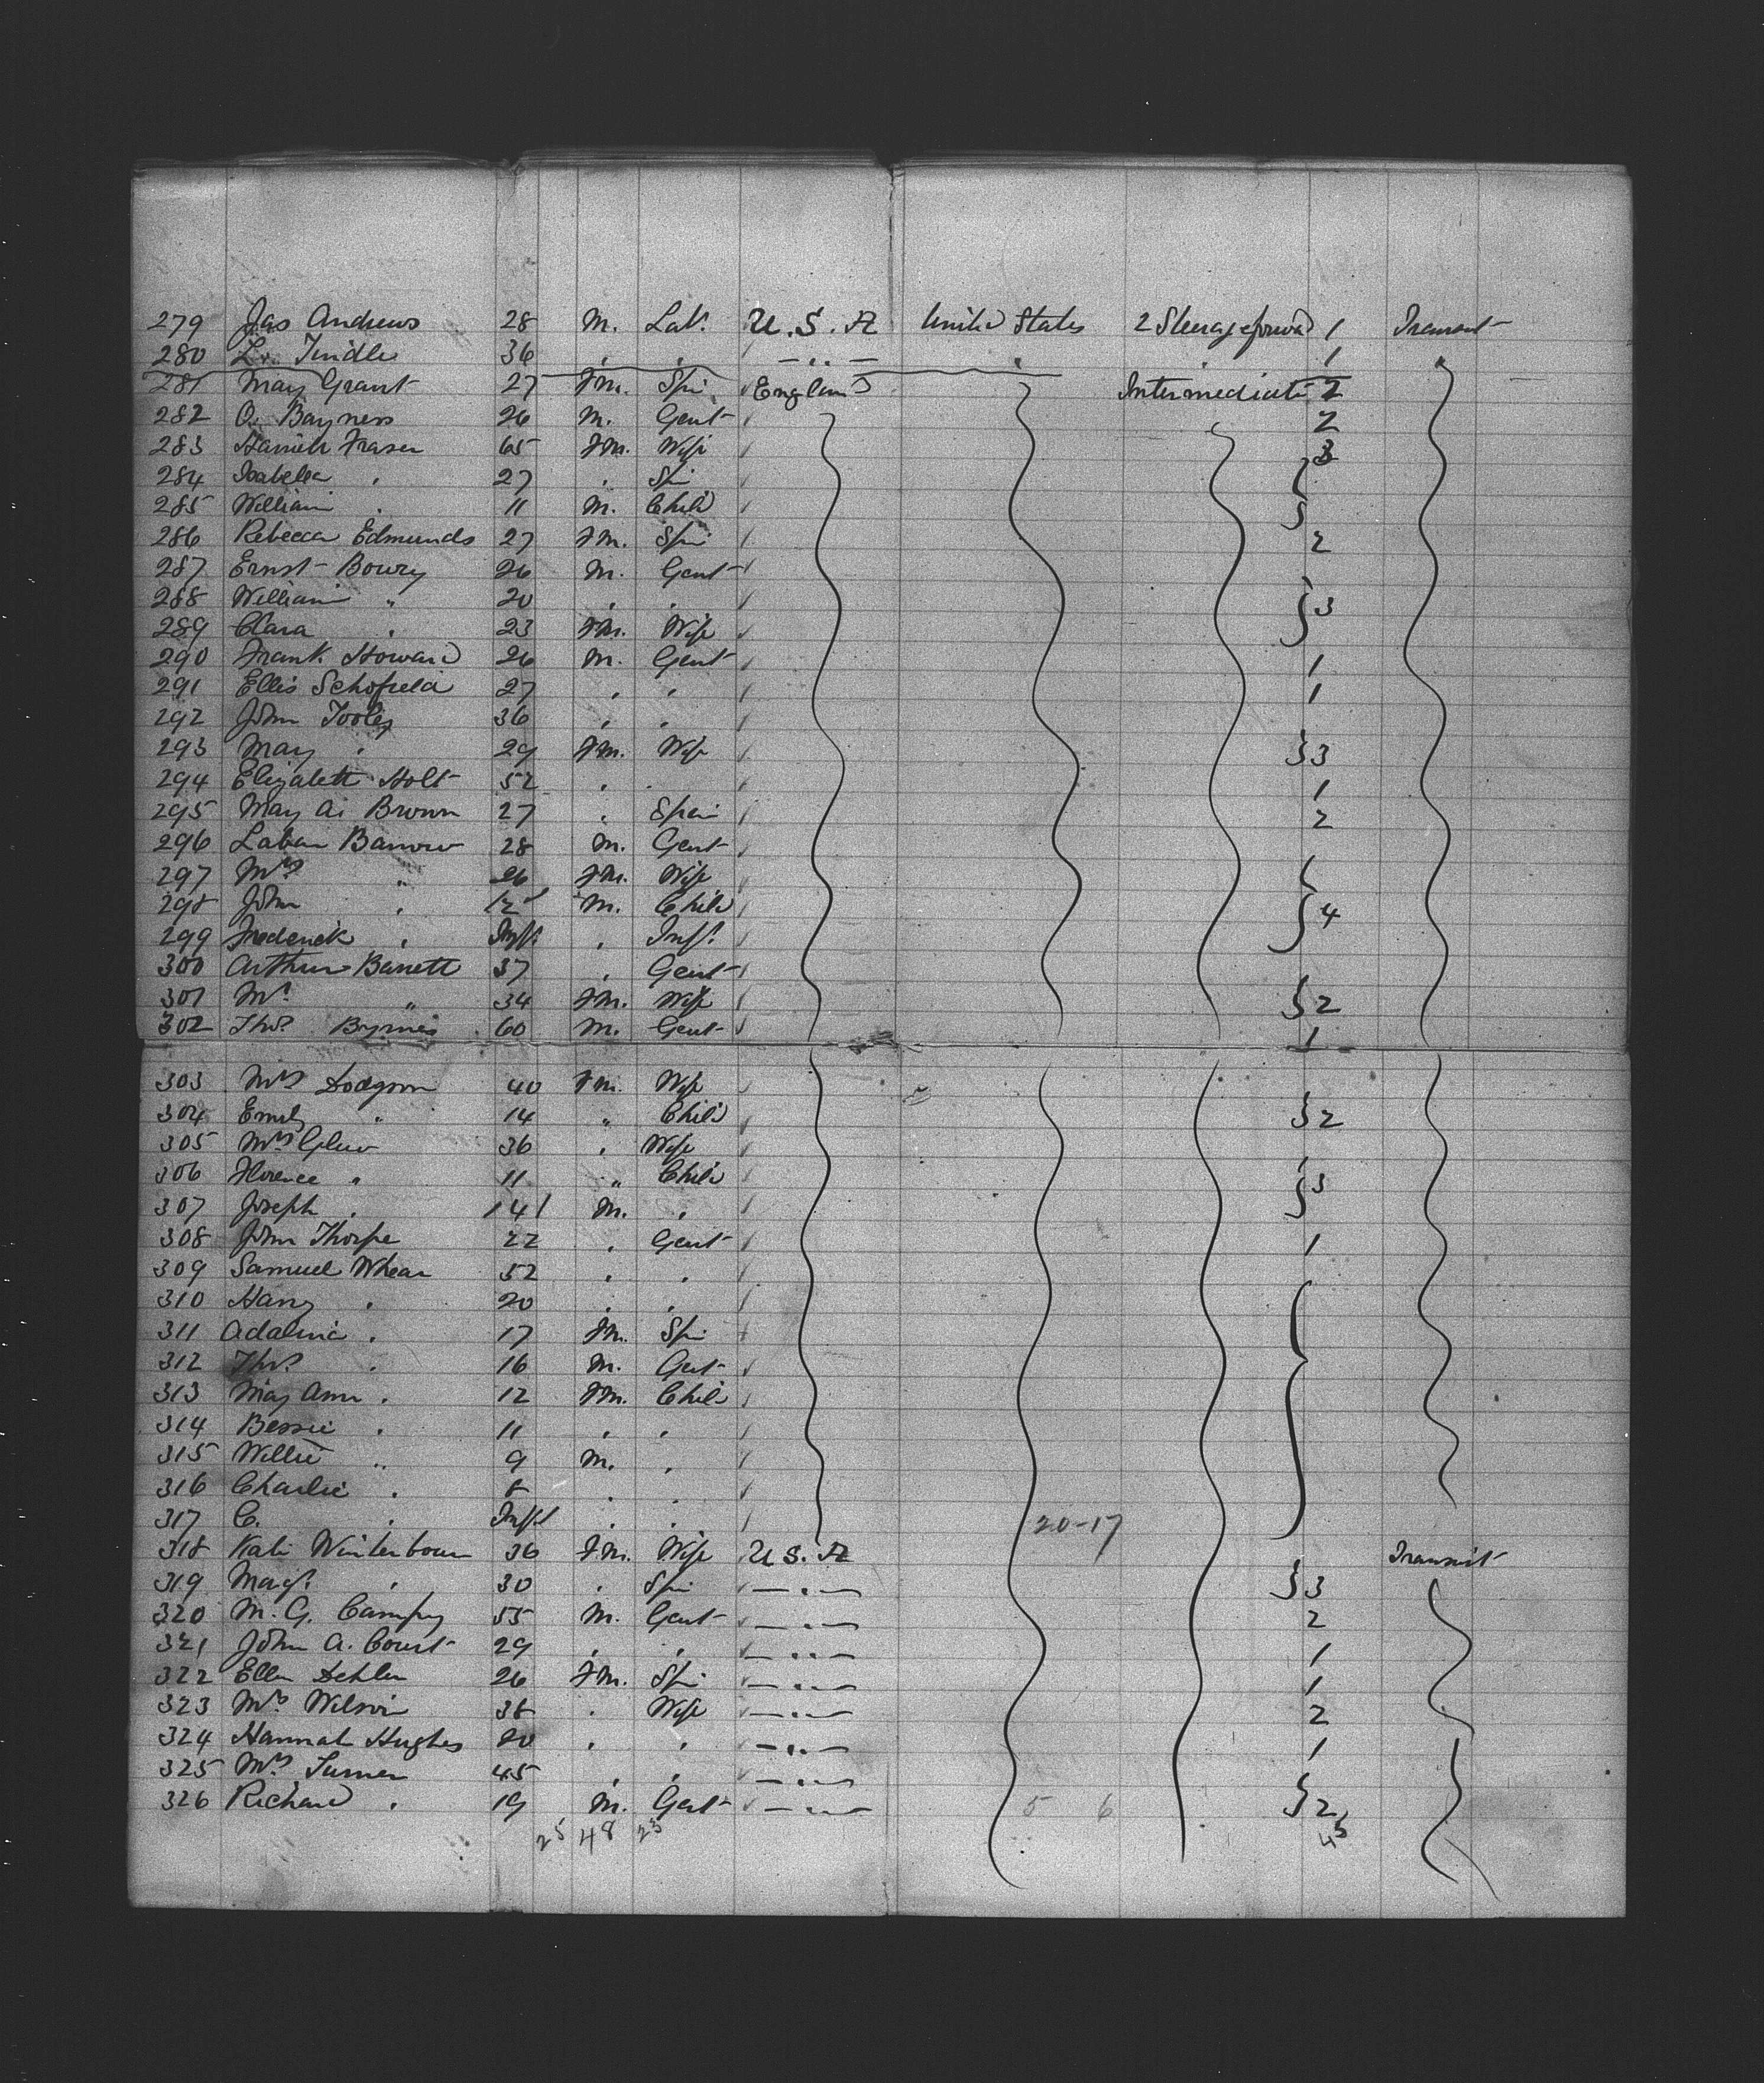 279 Jas Andrews 28 M. Lab. U.S.A United States 2 Steerage forwd 1 Transit
280 L. Tindle 36 " " — " — " 1
281 Mary Grant 27 Fm. Spi England Intermediate 2
282 O. Bayness 26 M. Gent 2
283 Harriett Fraser 65 Fm. Wife 3
284 Isabella " 27 " Spi
285 William " 11 M. Child
286 Rebecca Edmunds 27 Fm. Spi 2
287 Ernst Bowry 26 M. Gent
288 William " 20 " " 3
289 Clara " 23 Fm. Wife
290 Frank Howard 26 M. Gent 1
291 Ellis Schofield 27 " " 1
292 John Tooley 36 " "
293 Mary " 29 Fm. Wife 3
294 Elizabeth Holt 52 " 1
295 Mary A. Brown 27 " Spin 2
296 Laban Barrow 28 M. Gent
297 Mrs " 26 Fm. Wife
298 John " M. Child 4
299 Frederick " Inft " Inft.
300 Arthur Barrett 37 " Gent
301 Mrs " 34 Fm. Wife 2
302 Thos. Byrnes 60 M. Gent 1
303 Mrs Dodgson 40 Fm. Wife
304 Emily " 14 " Child 2
305 Mrs 36 " Wife
306 Florence " 11 " Child 3
307 Joseph " M. "
308 John Thorpe 22 " Gent 1
309 Samuel Whear 52 " "
310 Harry " 20 " "
311 Adalina " 17 Fm. Spi
312 Thos. " 16 M. Gent
313 May Ann " 12 Fm. Child
314 Bessie " 11 " "
315 Willie " 9 M. "
316 Charlie " 8 " "
317 C. " Inft " " 20-17
318 Kate Winterbourn 36 Fm. Wife U.S.A Transit
319 Magt. " 30 " Spi — " — 3
320 M. G. 55 M. Gent — " — 2
321 John A. Court 29 " " — " — 1
322 Ellen Dehler 26 Fm. Spi — " — 1
323 Mrs Wilson 38 " Wife — " — 2
324 Hannah Hughes 20 " " — " — 1
325 Mrs Turner 45 " " — " —
326 Richard " 19 M. Gent — " — 5 6 2
25 48 23 45